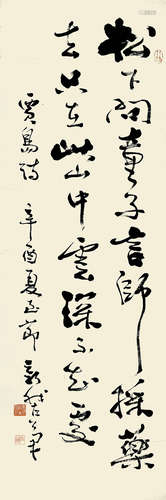 松下問童子言師採藥
去只在此山中雲深不知處
賈島詩 辛酉夏至節